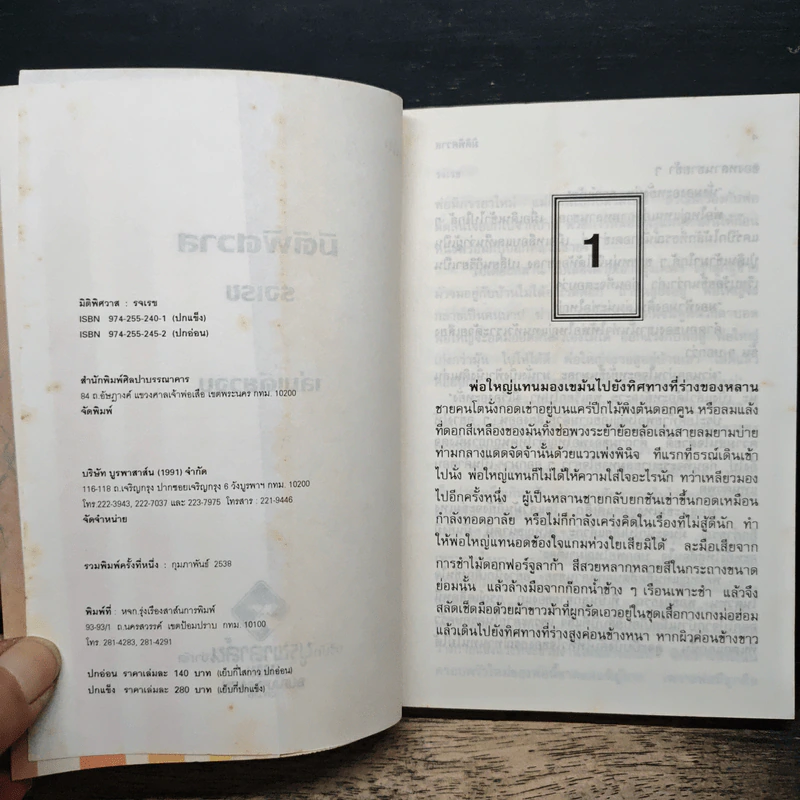 มิติพิศวาส : รจเรข
ISBN 974-255-240-1 (ปกแข็ง)
ISBN 974-255-245-2 (ปกอ่อน)
สำนักพิมพ์ศิลปาบรรณาคาร
84 ถ.อัษฎางค์ แขวงศาลเจ้าพ่อเสือ เขตพระนคร กทม. 10200
จัดพิมพ์
บริษัท บูรพาสาส์น (1991) จำกัด
116-118 ถ.เจริญกรุง ปากซอยเจริญกรุง 6 วังบูรพาฯ กทม. 10200
โทร 222-3943, 222-7037 และ 223-7975 โทรสาร : 221-9446
จัดจำหน่าย
รวมพิมพ์ครั้งที่หนึ่ง : กุมภาพันธ์ 2538
พิมพ์ที่ : หจก.รุ่งเรืองสาส์นการพิมพ์
93-93/1 ถ.นครสวรรค์ เขตป้อมปราบ กทม. 10100
โทร 281-4283, 281-4291
ปกอ่อน ราคาเล่มละ 140 บาท (เย็บกี่ไสกาว ปกอ่อน)
ปกแข็ง ราคาเล่มละ 280 บาท (เย็บกี่ปกแข็ง)
1
พ่อใหญ่แทนมองเขม้นไปยังทิศทางที่ร่างของหลาน
ชายคนโตนั่งกอดเข่าอยู่บนแคร่ปีกไม้พิงต้นดอกคูน หรือลมแล้ง
ที่ดอกสีเหลืองของมันทิ้งช่อพวงระย้าย้อยล้อเล่นสายลมยามบ่าย
ท่ามกลางแดดจัดจ้านั้นด้วยแววเพ่งพินิจ ทีแรกที่ธรณ์เดินเข้า
ไปนั่ง พ่อใหญ่แทนก็ไม่ได้ให้ความใส่ใจอะไรนัก ทว่าเหลียวมอง
ไปอีกครั้งหนึ่ง ผู้เป็นหลานชายกลับยกชันเข่าขึ้นกอดเหมือน
กำลังทอดอาลัย หรือไม่ก็กำลังเคร่งคิดในเรื่องที่ไม่สู้ดีนัก ทำ
ให้พ่อใหญ่แทนอดข้องใจแกมห่วงใยเสียมิได้ ละมือเสียจาก
การชำไม้ดอกฟอร์จูลาก้า สีสวยหลากหลายสีในกระถางขนาด
ย่อมนั้น แล้วล้างมือจากก๊อกน้ำข้าง ๆ เรือนเพาะชำ แล้วจึง
สลัดเช็ดมือด้วยผ้าขาวม้าที่ผูกรัดเอวอยู่ในชุดเสื้อกางเกงม่อฮ่อม
แล้วเดินไปยังทิศทางที่ร่างสูงค่อนข้างหนา หากผิวค่อนข้างขาว